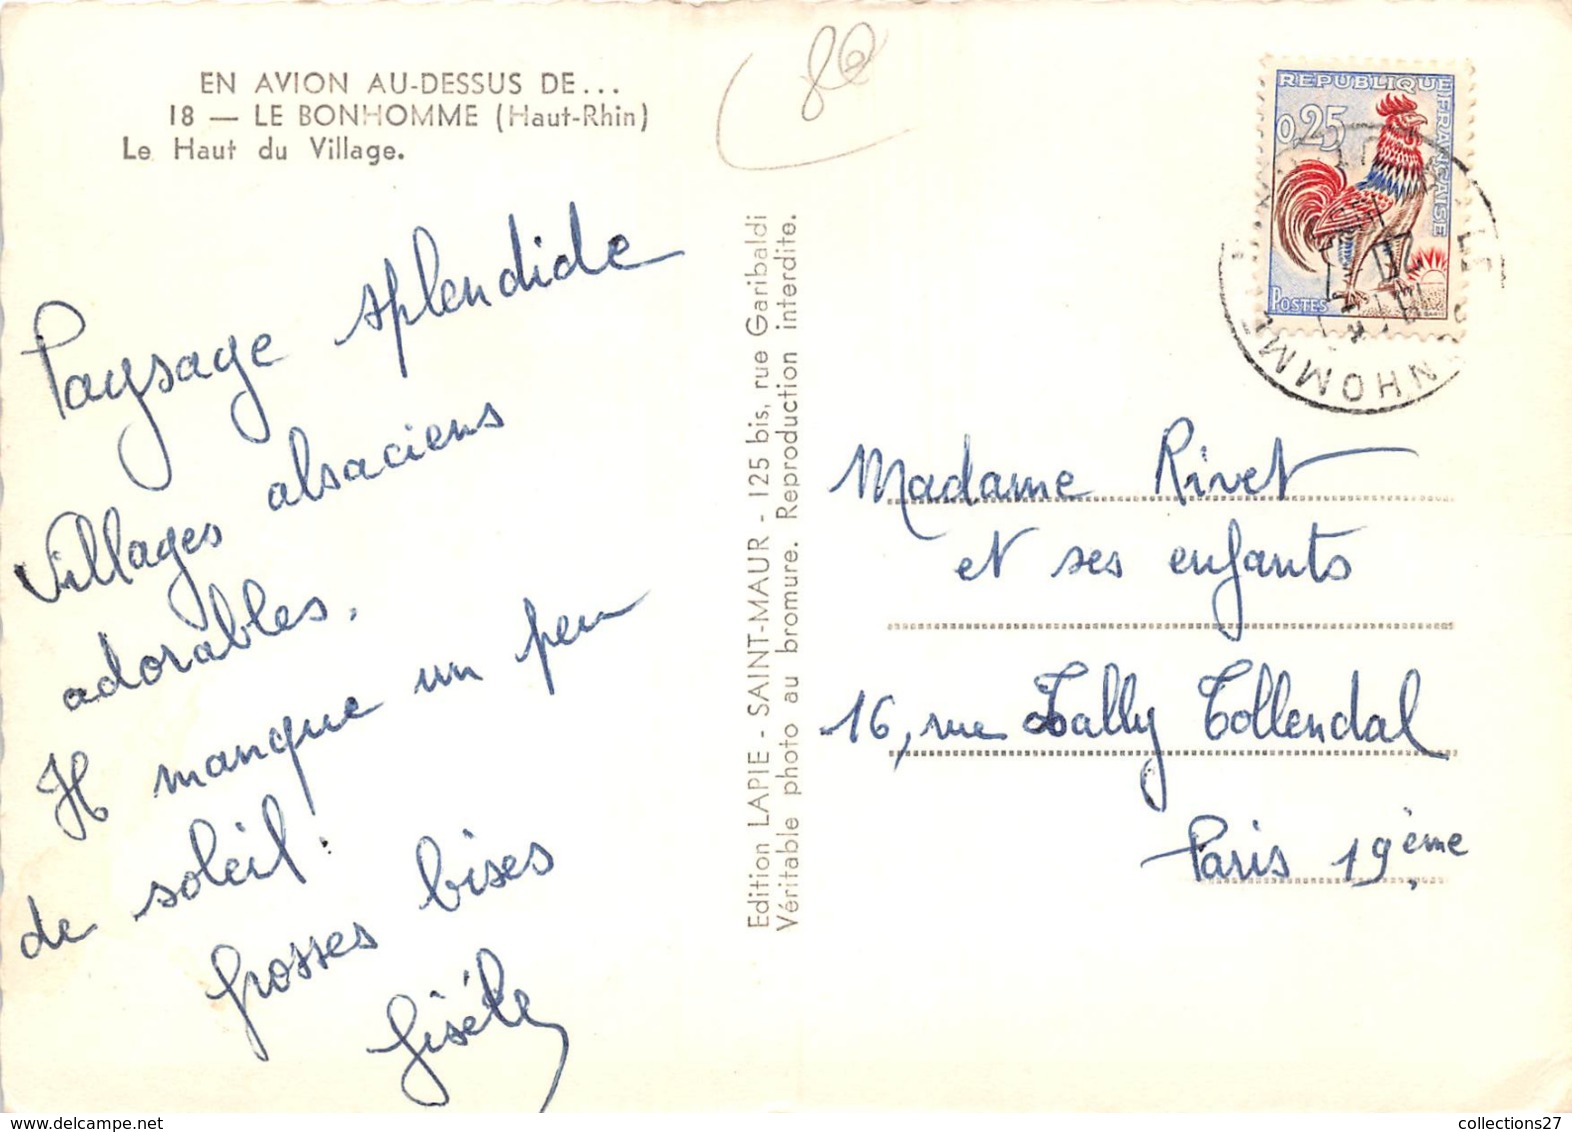 EN AVION AU-DESSUS DE...
18 — LE BONHOMME (Haut-Rhin)
Le Haut du Village.
Paysage splendide
Villages alsaciens
adorables.
Il manque un peu
de soleil!
grosses bises
Gisèle
Edition LAPIE - SAINT-MAUR - 125 bis, rue Garibaldi
Véritable photo au bromure. Reproduction interdite.
REPUBLIQUE FRANÇAISE
0,25
POSTES
LE
NHOMM
Madame Rivet
et ses enfants
16, rue Lally Tollendal
Paris 19ème
collections27